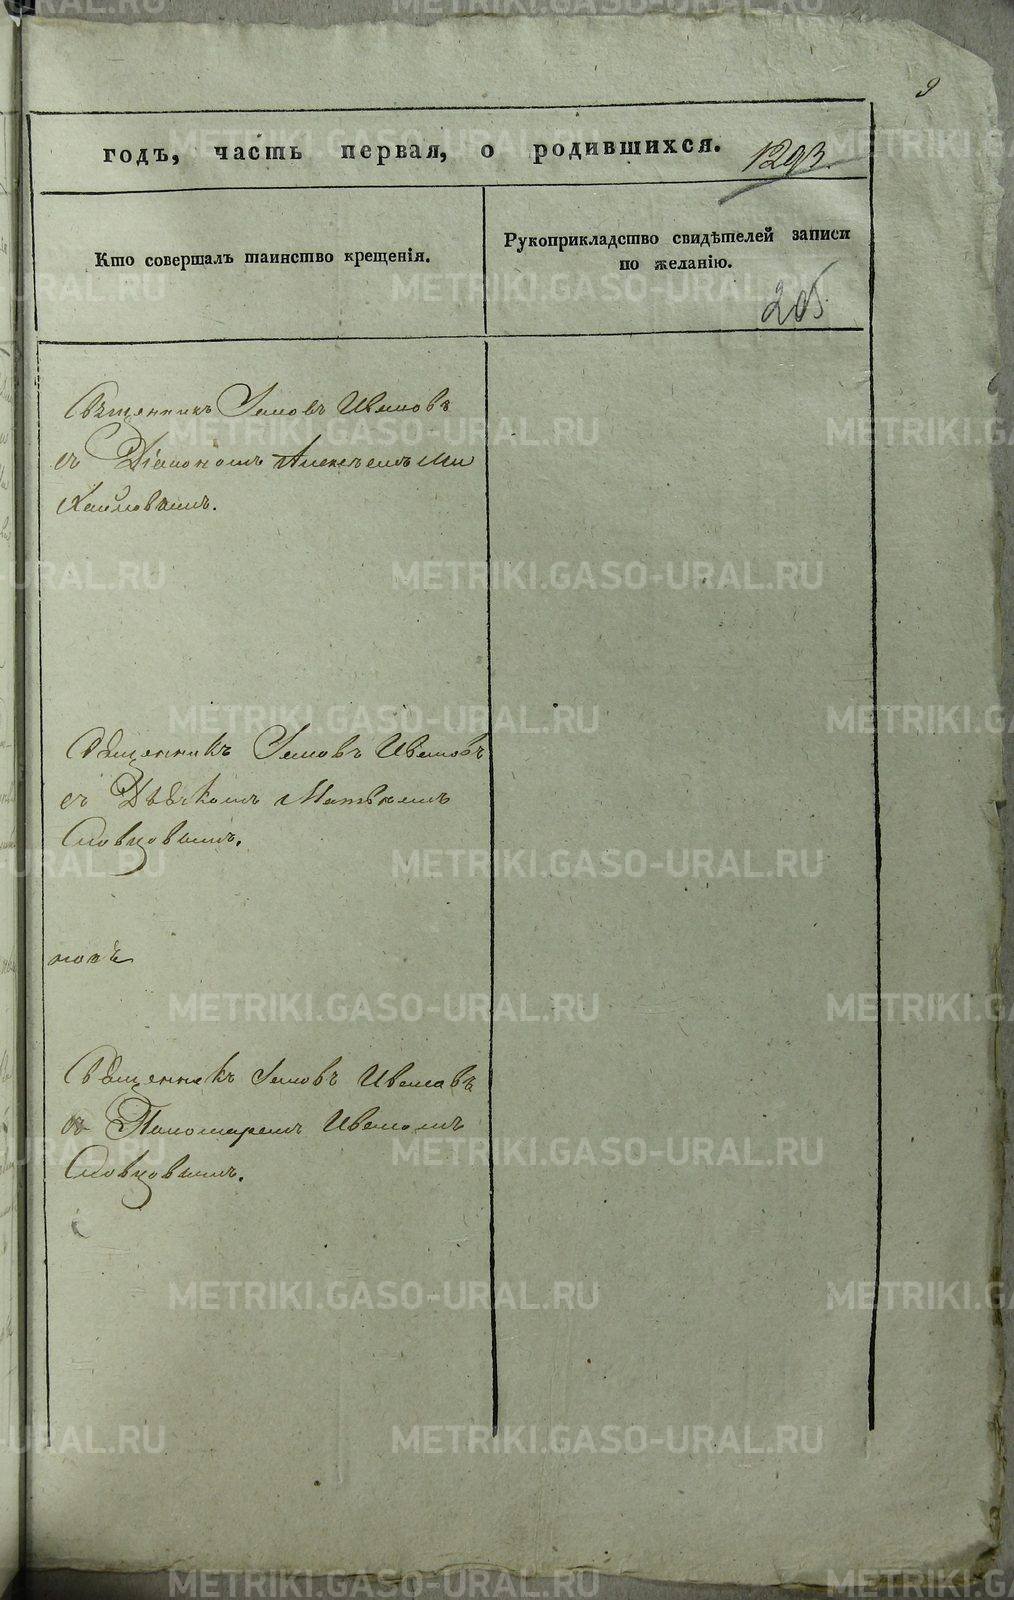 9
годъ, часть первая, о родившихся. 1293.
Кто совершалъ таинство крещенія.
Рукоприкладство свидѣтелей записи
по желанію.
205.
Священникъ Іаковъ Ивановъ
съ Діакономъ Алексѣемъ Ми
хайловымъ.
Священникъ Іаковъ Ивановъ
съ Дьячкомъ
Словцовымъ.
Священникъ Іаковъ Ивановъ
съ Пономаремъ Иваномъ
Словцовымъ.
METRIKI.GASO-URAL.RU